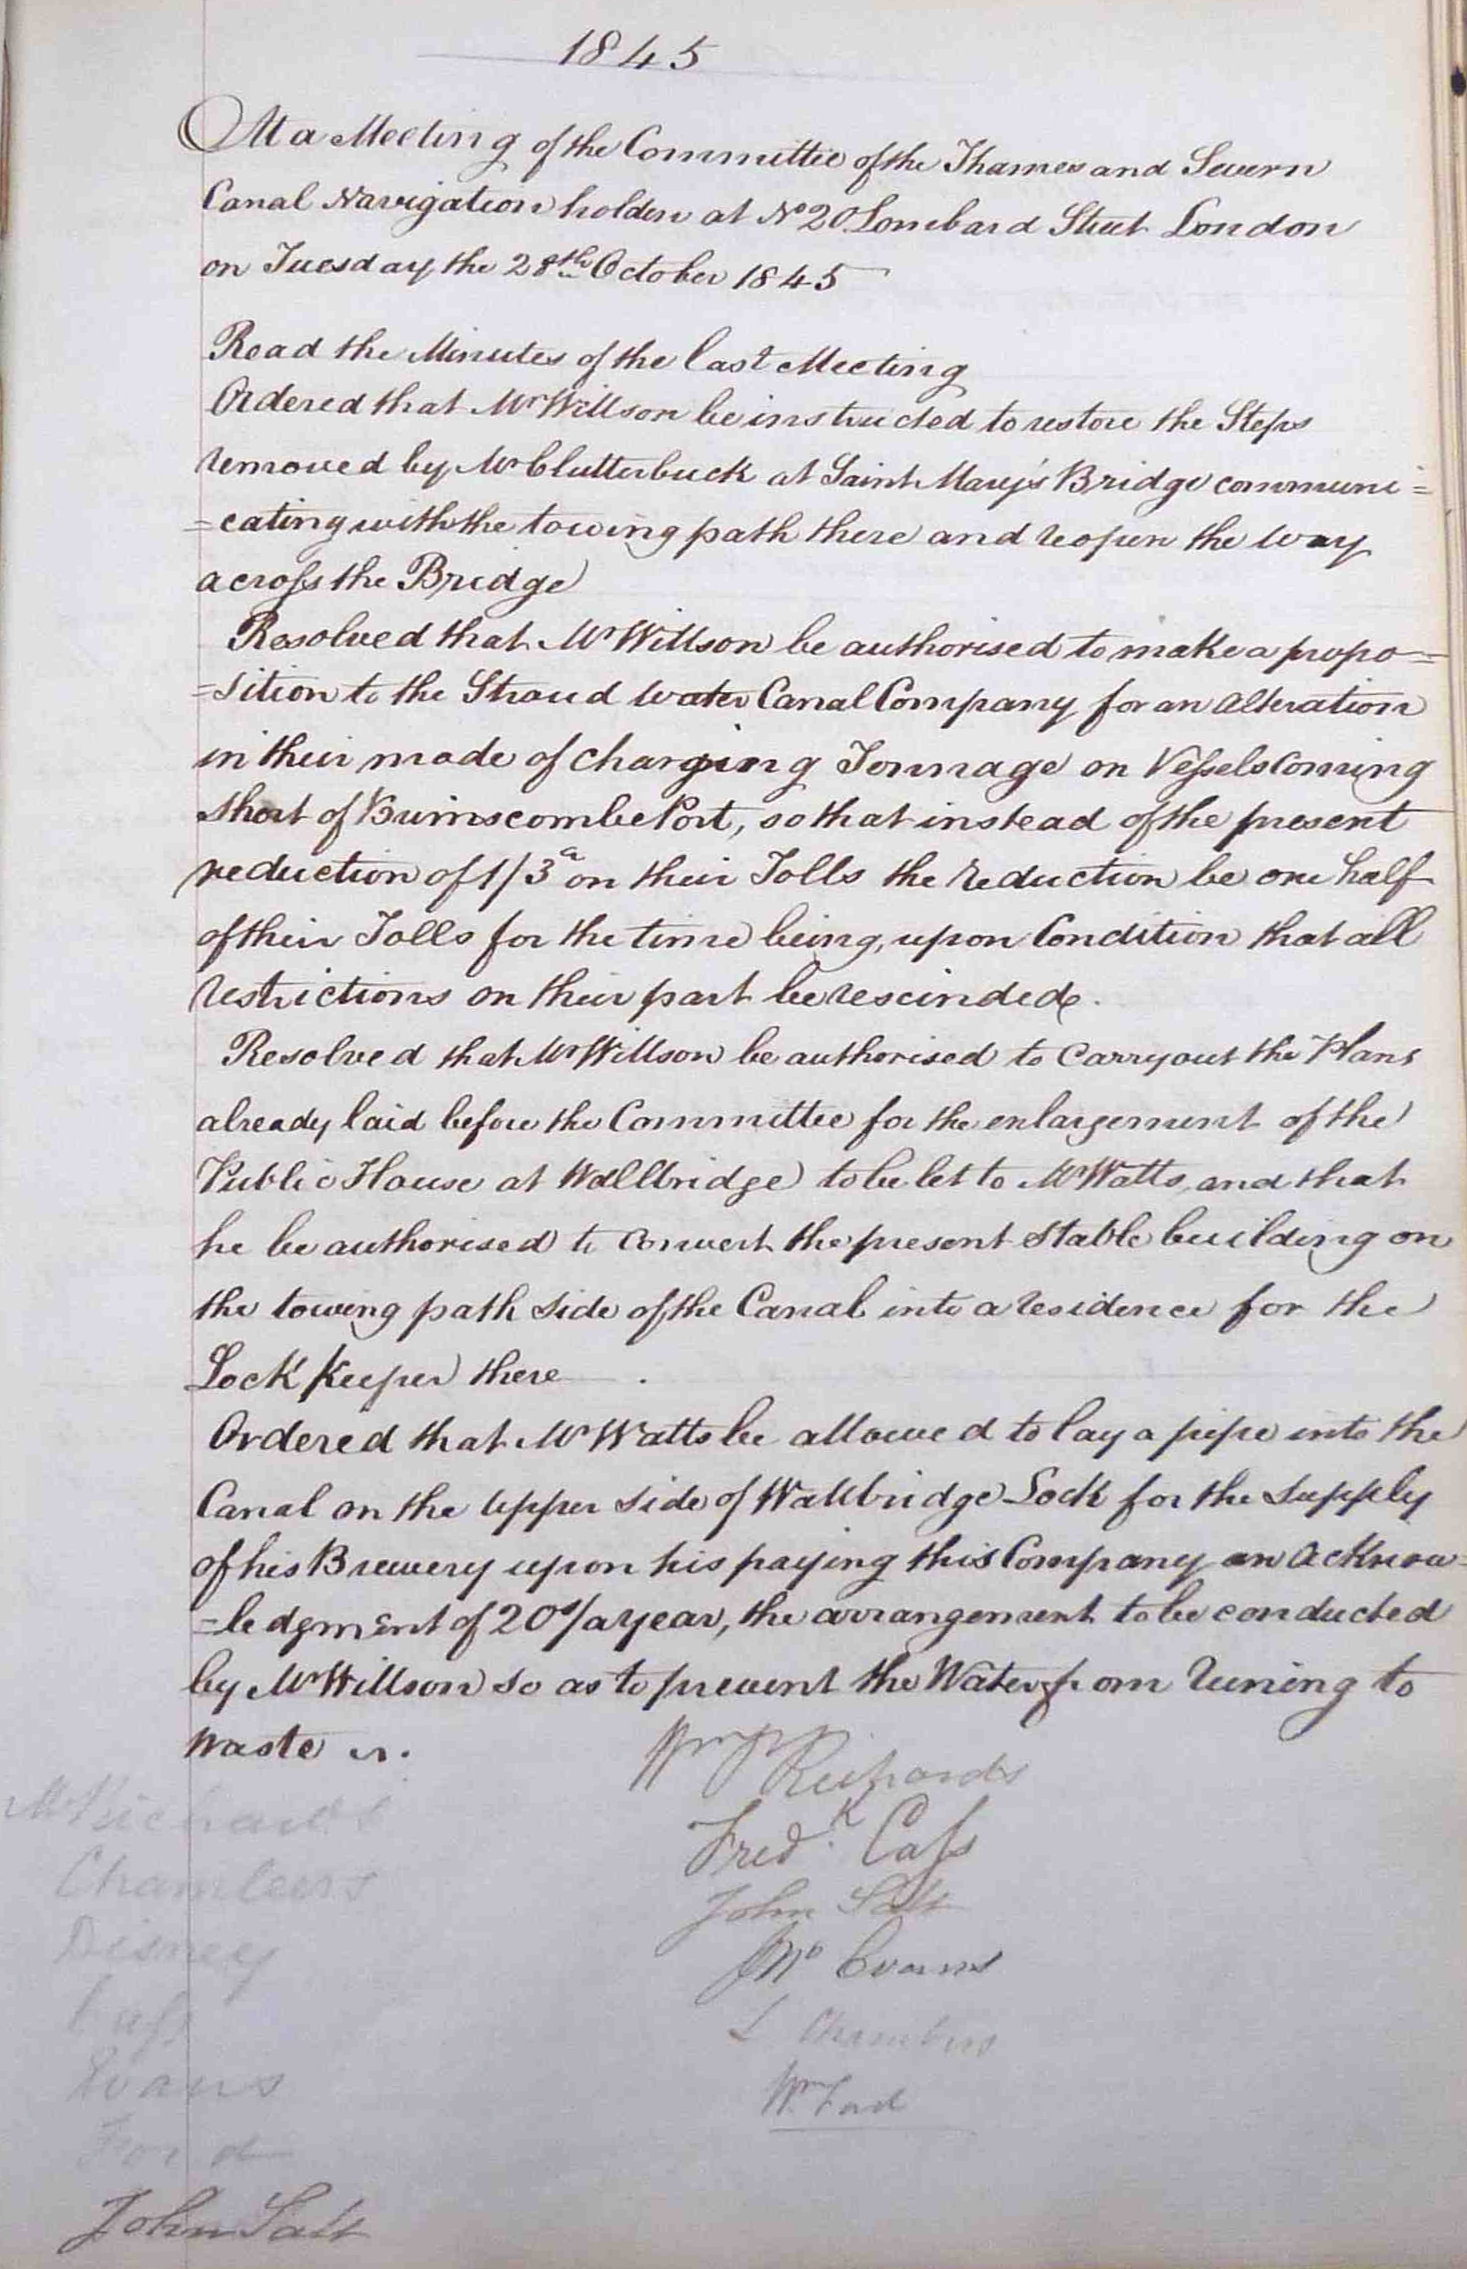 1845
At a Meeting of the Committee of the Thames and Severn
Canal Navigation holden at No 20 Lombard Street London
on Tuesday the 28th October 1845
Read the Minutes of the last Meeting
Ordered that Mr Willson be instructed to restore the Steps
removed by Mr Clutterbuck at Saint Mary's Bridge communi=
=cating with the towing path there and reopen the way
across the Bridge
Resolved that Mr Willson be authorised to make a propo=
=sition to the Stroud water Canal Company for an alteration
in their mode of charging Tonnage on Vessels Coming
short of Brimscombe Port, so that instead of the present
reduction of 1/3d on their Tolls the reduction be one half
of their Tolls for the time being, upon Condition that all
restrictions on their part be rescinded.
Resolved that Mr Willson be authorised to carry out the Plans
already laid before the Committee for the enlargement of the
Public House at Wallbridge to be let to Mr Watts, and that
he be authorised to convert the present stable building on
the towing path side of the Canal into a residence for the
Lock keeper there.
Ordered that Mr Watts be allowed to lay a pipe into the
Canal on the upper side of Wallbridge Lock for the supply
of his Brewery upon his paying this Company an acknow=
=ledgment of 20s/ a year, the arrangement to be conducted
by Mr Willson so as to prevent the Water from runing to
waste.
Wm Richards
Fredk Cass
John Salt
Jno Evans
L Chambers
Wm Ford
Mr Richards
Chambers
Disney
Cass
Evans
Ford
John Salt